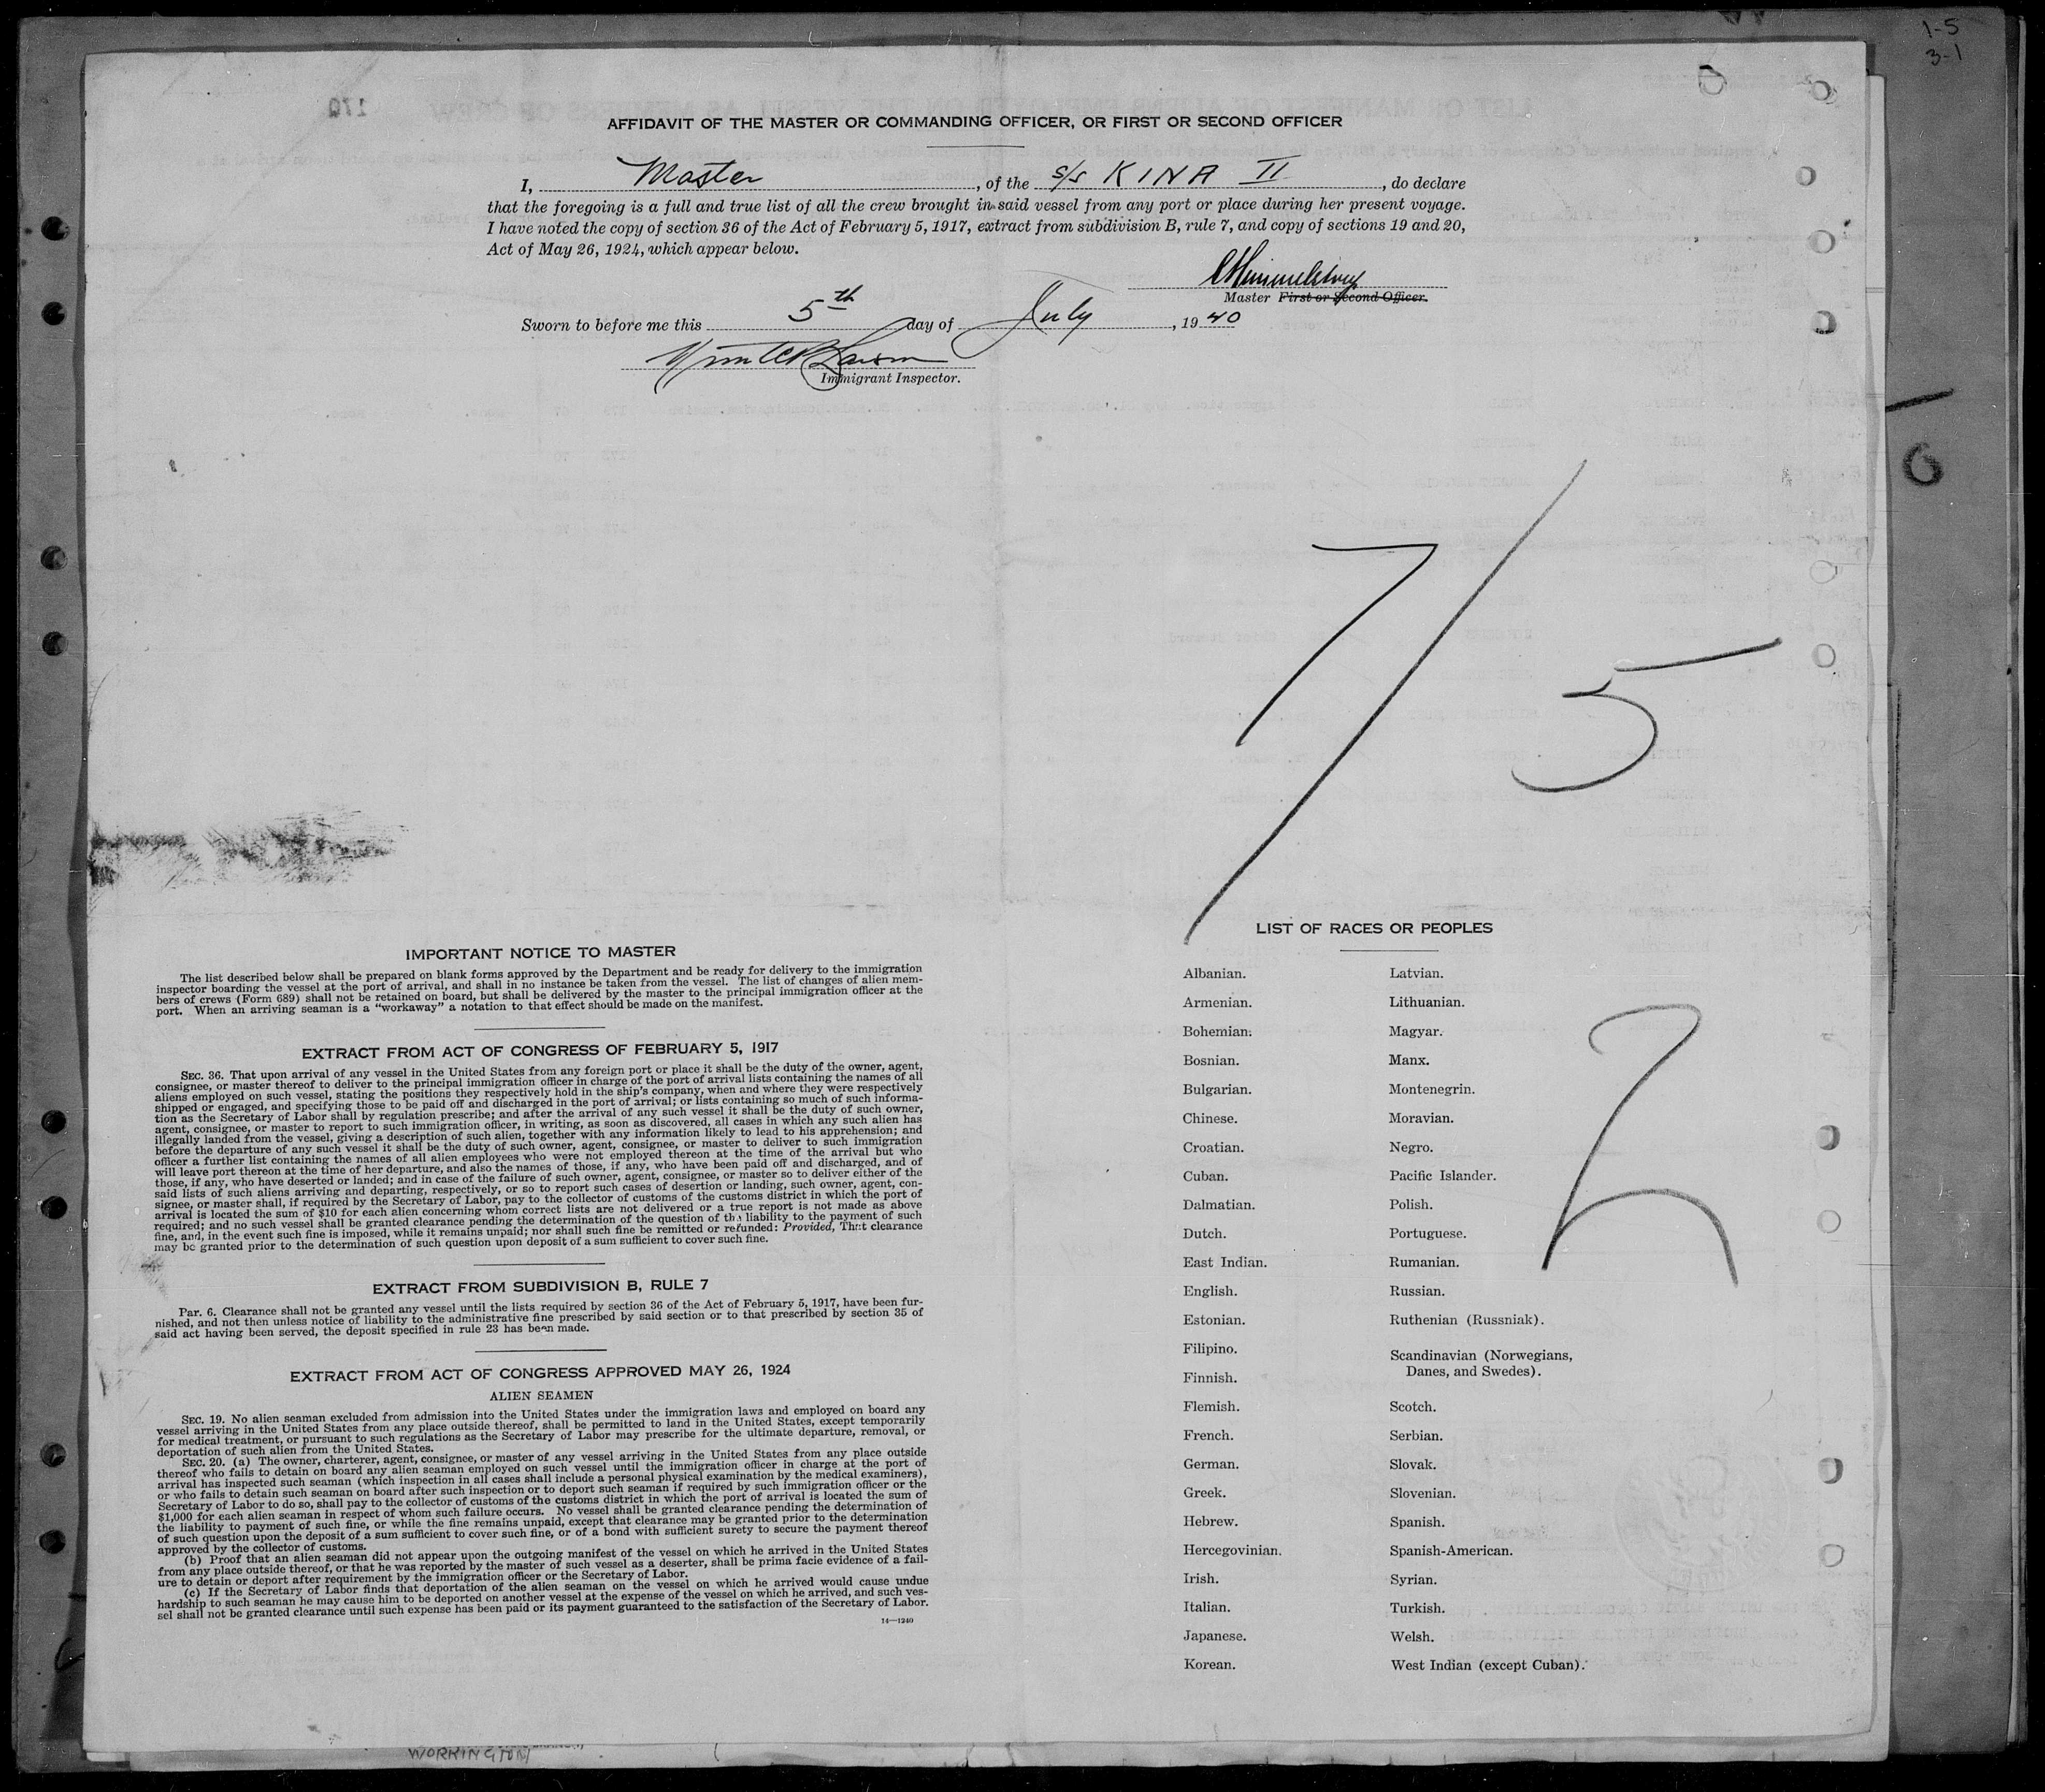 1-5
3-1
AFFIDAVIT OF THE MASTER OR COMMANDING OFFICER, OR FIRST OR SECOND OFFICER
I, Master, of the s/s KINA II, do declare
that the foregoing is a full and true list of all the crew brought in said vessel from any port or place during her present voyage.
I have noted the copy of section 36 of the Act of February 5, 1917, extract from subdivision B, rule 7, and copy of sections 19 and 20,
Act of May 26, 1924, which appear below.
Master First or Second Officer.
Sworn to before me this 5th day of July, 1940
Immigrant Inspector.
6
7/5
2
IMPORTANT NOTICE TO MASTER
The list described below shall be prepared on blank forms approved by the Department and be ready for delivery to the immigration
inspector boarding the vessel at the port of arrival, and shall in no instance be taken from the vessel. The list of changes of alien mem-
bers of crews (Form 689) shall not be retained on board, but shall be delivered by the master to the principal immigration officer at the
port. When an arriving seaman is a "workaway" a notation to that effect should be made on the manifest.
EXTRACT FROM ACT OF CONGRESS OF FEBRUARY 5, 1917
SEC. 36. That upon arrival of any vessel in the United States from any foreign port or place it shall be the duty of the owner, agent,
consignee, or master thereof to deliver to the principal immigration officer in charge of the port of arrival lists containing the names of all
aliens employed on such vessel, stating the positions they respectively hold in the ship's company, when and where they were respectively
shipped or engaged, and specifying those to be paid off and discharged in the port of arrival; or lists containing so much of such informa-
tion as the Secretary of Labor shall by regulation prescribe; and after the arrival of any such vessel it shall be the duty of such owner,
agent, consignee, or master to report to such immigration officer, in writing, as soon as discovered, all cases in which any such alien has
illegally landed from the vessel, giving a description of such alien, together with any information likely to lead to his apprehension; and
before the departure of any such vessel it shall be the duty of such owner, agent, consignee, or master to deliver to such immigration
officer a further list containing the names of all alien employees who were not employed thereon at the time of the arrival but who
will leave port thereon at the time of her departure, and also the names of those, if any, who have been paid off and discharged, and of
those, if any, who have deserted or landed; and in case of the failure of such owner, agent, consignee, or master so to deliver either of the
said lists of such aliens arriving and departing, respectively, or so to report such cases of desertion or landing, such owner, agent, con-
signee, or master shall, if required by the Secretary of Labor, pay to the collector of customs of the customs district in which the port of
arrival is located the sum of $10 for each alien concerning whom correct lists are not delivered or a true report is not made as above
required; and no such vessel shall be granted clearance pending the determination of the question of the liability to the payment of such
fine, and, in the event such fine is imposed, while it remains unpaid; nor shall such fine be remitted or refunded: Provided, That clearance
may be granted prior to the determination of such question upon deposit of a sum sufficient to cover such fine.
EXTRACT FROM SUBDIVISION B, RULE 7
Par. 6. Clearance shall not be granted any vessel until the lists required by section 36 of the Act of February 5, 1917, have been fur-
nished, and not then unless notice of liability to the administrative fine prescribed by said section or to that prescribed by section 35 of
said act having been served, the deposit specified in rule 23 has been made.
EXTRACT FROM ACT OF CONGRESS APPROVED MAY 26, 1924
ALIEN SEAMEN
SEC. 19. No alien seaman excluded from admission into the United States under the immigration laws and employed on board any
vessel arriving in the United States from any place outside thereof, shall be permitted to land in the United States, except temporarily
for medical treatment, or pursuant to such regulations as the Secretary of Labor may prescribe for the ultimate departure, removal, or
deportation of such alien from the United States.
SEC. 20. (a) The owner, charterer, agent, consignee, or master of any vessel arriving in the United States from any place outside
thereof who fails to detain on board any alien seaman employed on such vessel until the immigration officer in charge at the port of
arrival has inspected such seaman (which inspection in all cases shall include a personal physical examination by the medical examiners),
or who fails to detain such seaman on board after such inspection or to deport such seaman if required by such immigration officer or the
Secretary of Labor to do so, shall pay to the collector of customs of the customs district in which the port of arrival is located the sum of
$1,000 for each alien seaman in respect of whom such failure occurs. No vessel shall be granted clearance pending the determination of
the liability to payment of such fine, or while the fine remains unpaid, except that clearance may be granted prior to the determination
of such question upon the deposit of a sum sufficient to cover such fine, or of a bond with sufficient surety to secure the payment thereof
approved by the collector of customs.
(b) Proof that an alien seaman did not appear upon the outgoing manifest of the vessel on which he arrived in the United States
from any place outside thereof, or that he was reported by the master of such vessel as a deserter, shall be prima facie evidence of a fail-
ure to detain or deport after requirement by the immigration officer or the Secretary of Labor.
(c) If the Secretary of Labor finds that deportation of the alien seaman on the vessel on which he arrived would cause undue
hardship to such seaman he may cause him to be deported on another vessel at the expense of the vessel on which he arrived, and such ves-
sel shall not be granted clearance until such expense has been paid or its payment guaranteed to the satisfaction of the Secretary of Labor.
14—1240
LIST OF RACES OR PEOPLES
Albanian.
Armenian.
Bohemian.
Bosnian.
Bulgarian.
Chinese.
Croatian.
Cuban.
Dalmatian.
Dutch.
East Indian.
English.
Estonian.
Filipino.
Finnish.
Flemish.
French.
German.
Greek.
Hebrew.
Hercegovinian.
Irish.
Italian.
Japanese.
Korean.
Latvian.
Lithuanian.
Magyar.
Manx.
Montenegrin.
Moravian.
Negro.
Pacific Islander.
Polish.
Portuguese.
Rumanian.
Russian.
Ruthenian (Russniak).
Scandinavian (Norwegians,
Danes, and Swedes).
Scotch.
Serbian.
Slovak.
Slovenian.
Spanish.
Spanish-American.
Syrian.
Turkish.
Welsh.
West Indian (except Cuban).
WORKINGTON